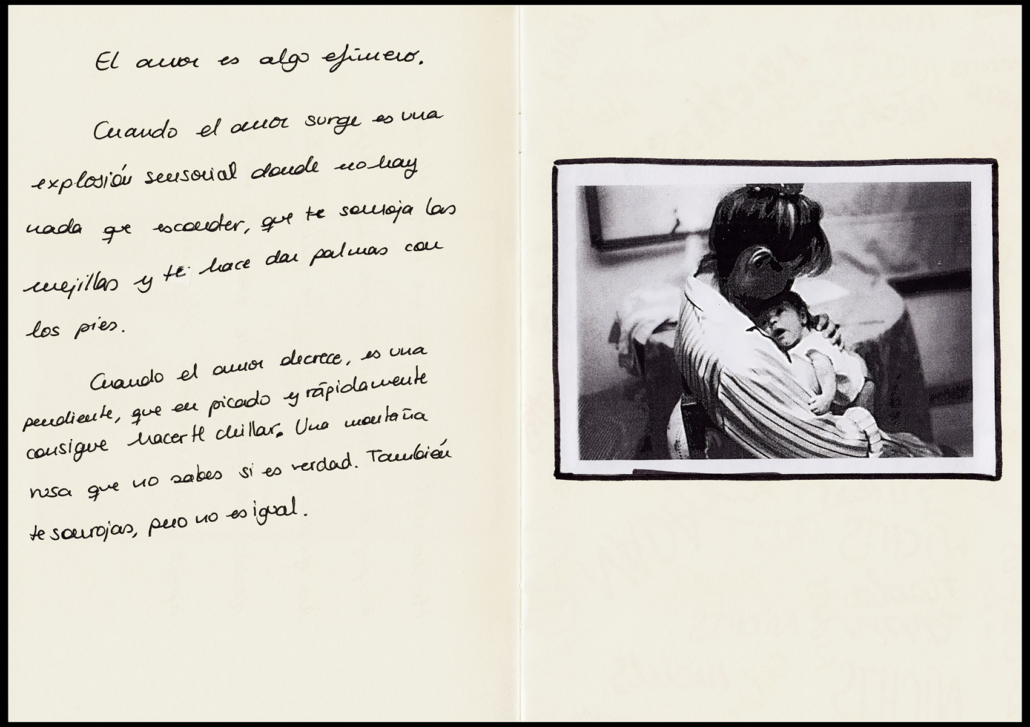 El amor es algo efímero.
Cuando el amor surge es una
explosión sensorial donde no hay
nada que esconder, que te sonroja las
mejillas y te hace dar palmas con
los pies.
Cuando el amor decrece, es una
pendiente, que en picado y rápidamente
consigue hacerte chillar. Una montaña
rusa que no sabes si es verdad. También
te sonrojas, pero no es igual.